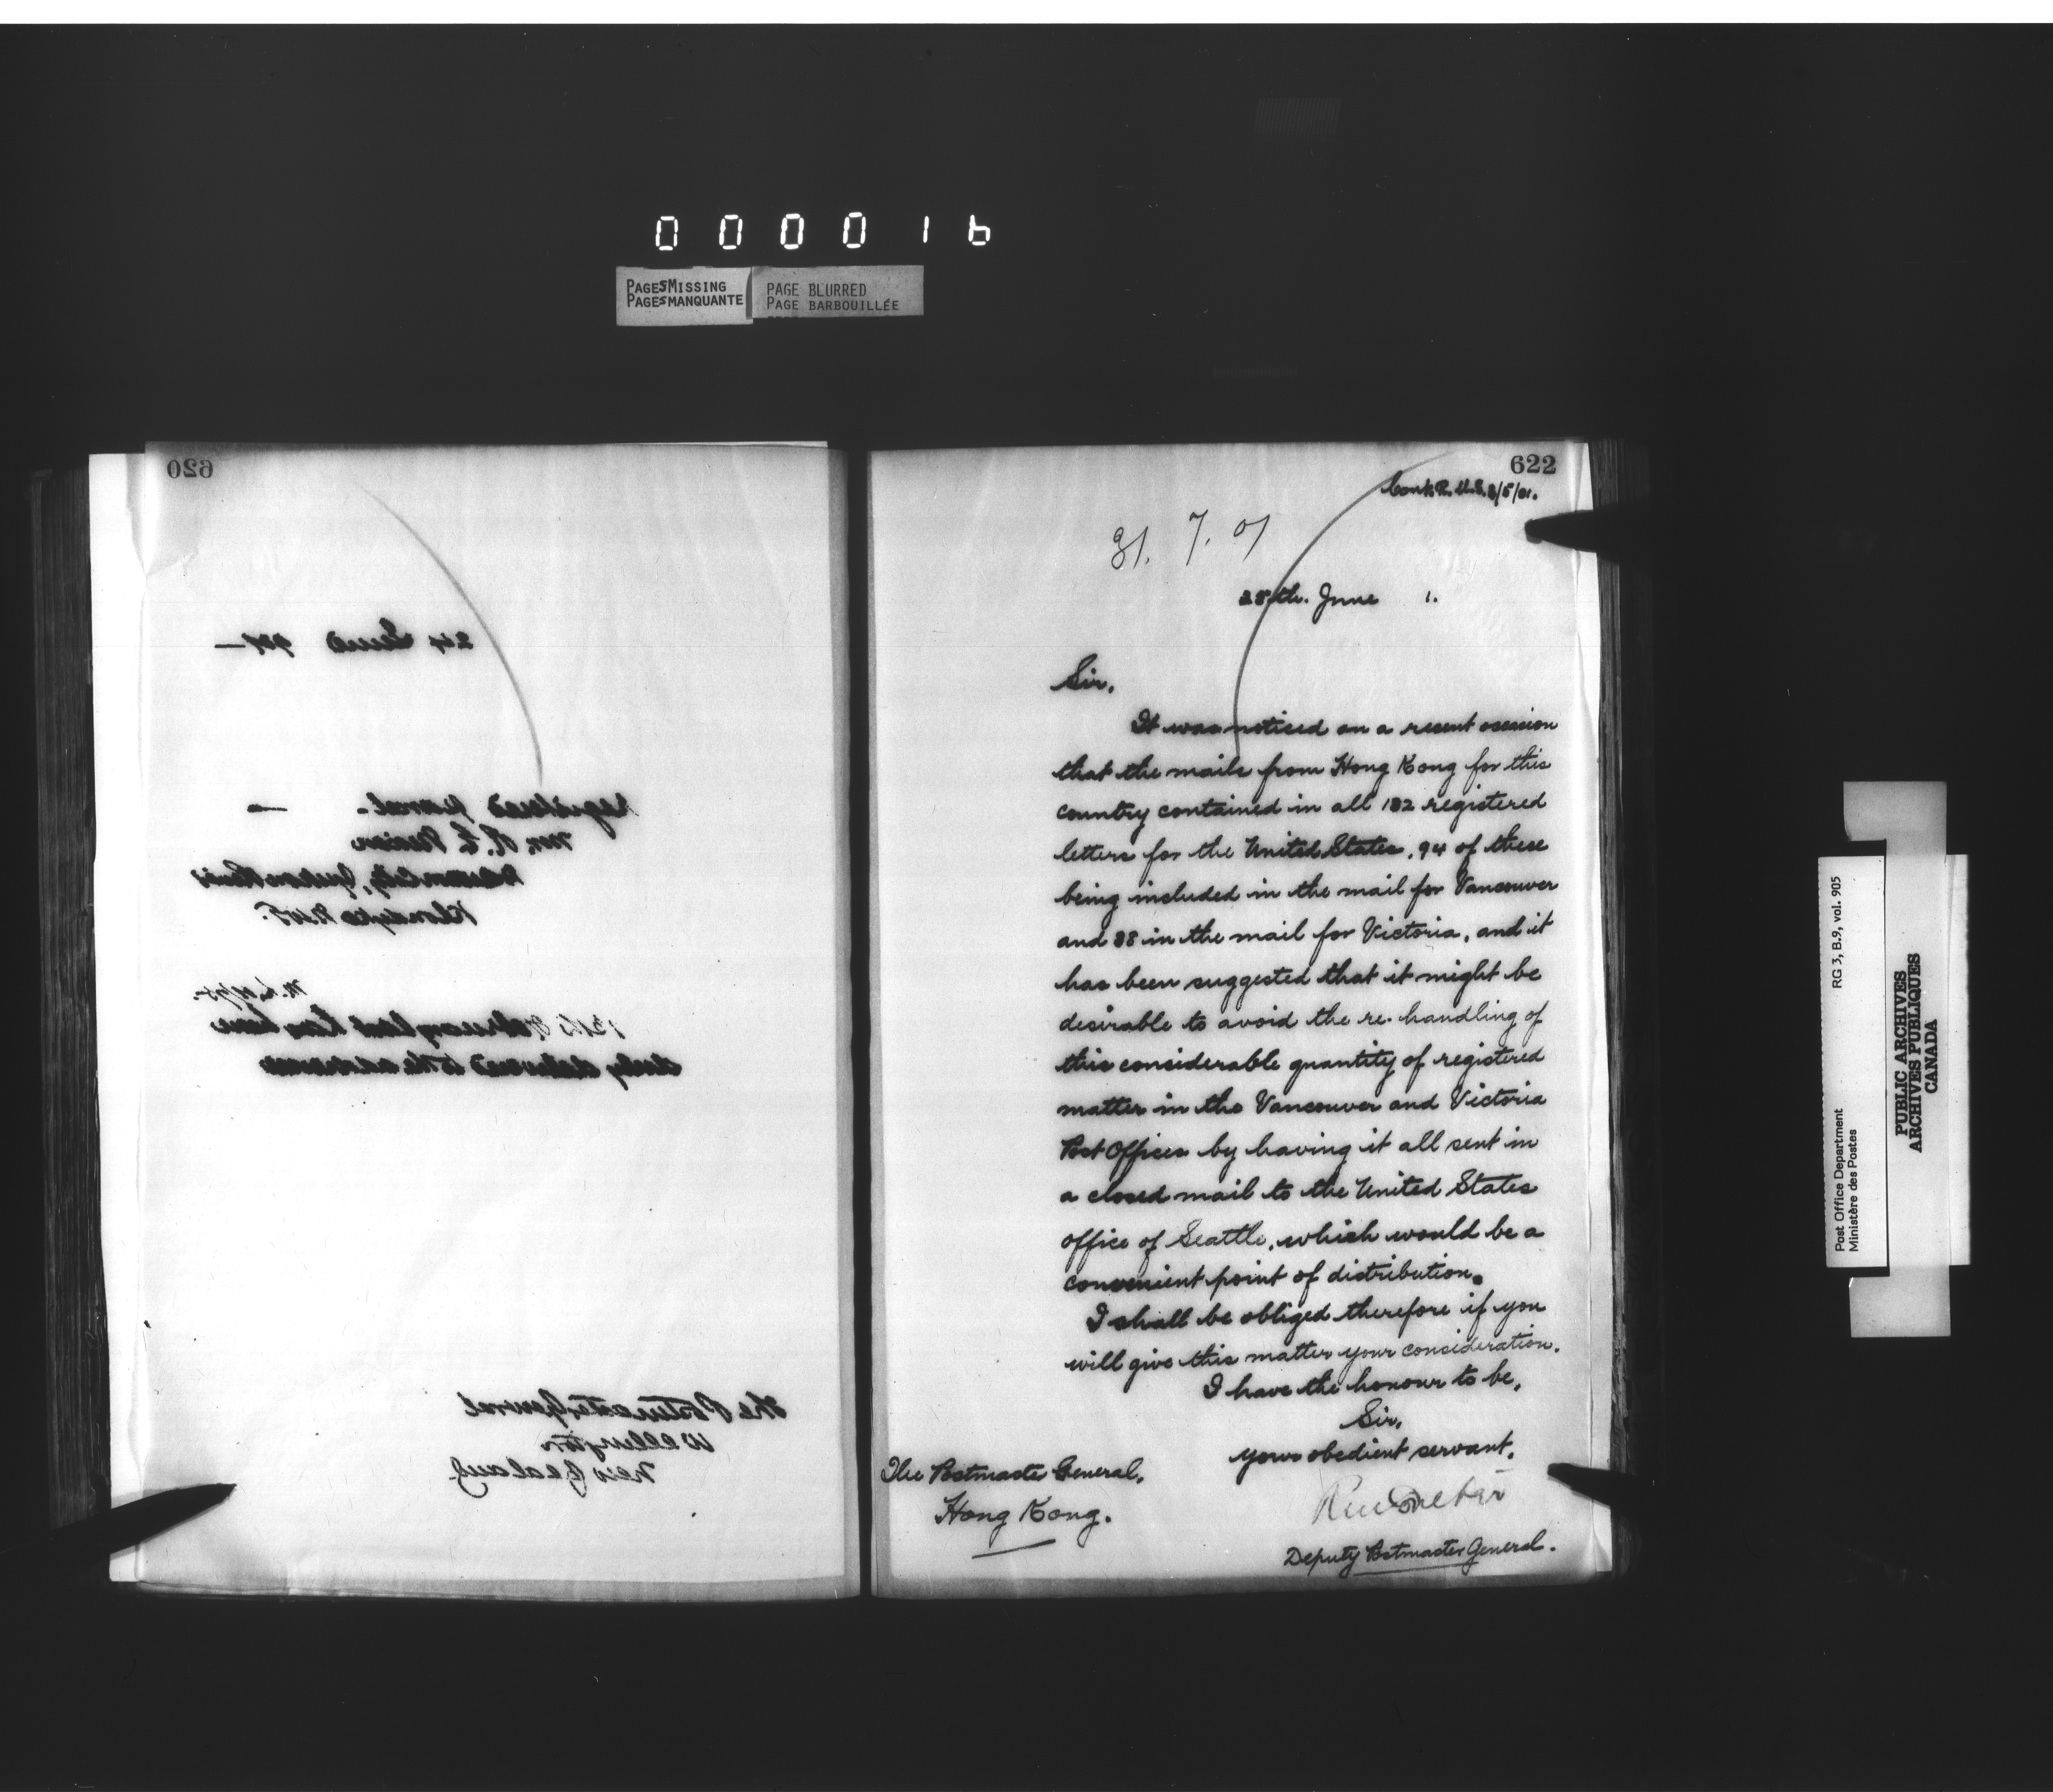 000016
PAGES MISSING
PAGES MANQUANTE
PAGE BLURRED
PAGE BARBOUILLÉE
620
24 June
Registered parcel -
Mr.
Klondyke N.W.T.
duly delivered to the addressee
The Postmaster General
Wellington
New Zealand
622
31. 7. 01
June 1.
Sir,
It was noticed on a recent occasion
that the mails from Hong Kong for this
country contained in all 182 registered
letters for the United States, 94 of these
being included in the mail for Vancouver
and 88 in the mail for Victoria, and it
has been suggested that it might be
desirable to avoid the re-handling of
this considerable quantity of registered
matter in the Vancouver and Victoria
Post Offices by having it all sent in
a closed mail to the United States
office of Seattle, which would be a
convenient point of distribution.
I shall be obliged therefore if you
will give this matter your consideration.
I have the honour to be,
Sir,
your obedient servant,
Deputy Postmaster General.
The Postmaster General,
Hong Kong.
Post Office Department
Ministère des Postes
RG 3, B.9, vol. 905
PUBLIC ARCHIVES
ARCHIVES PUBLIQUES
CANADA